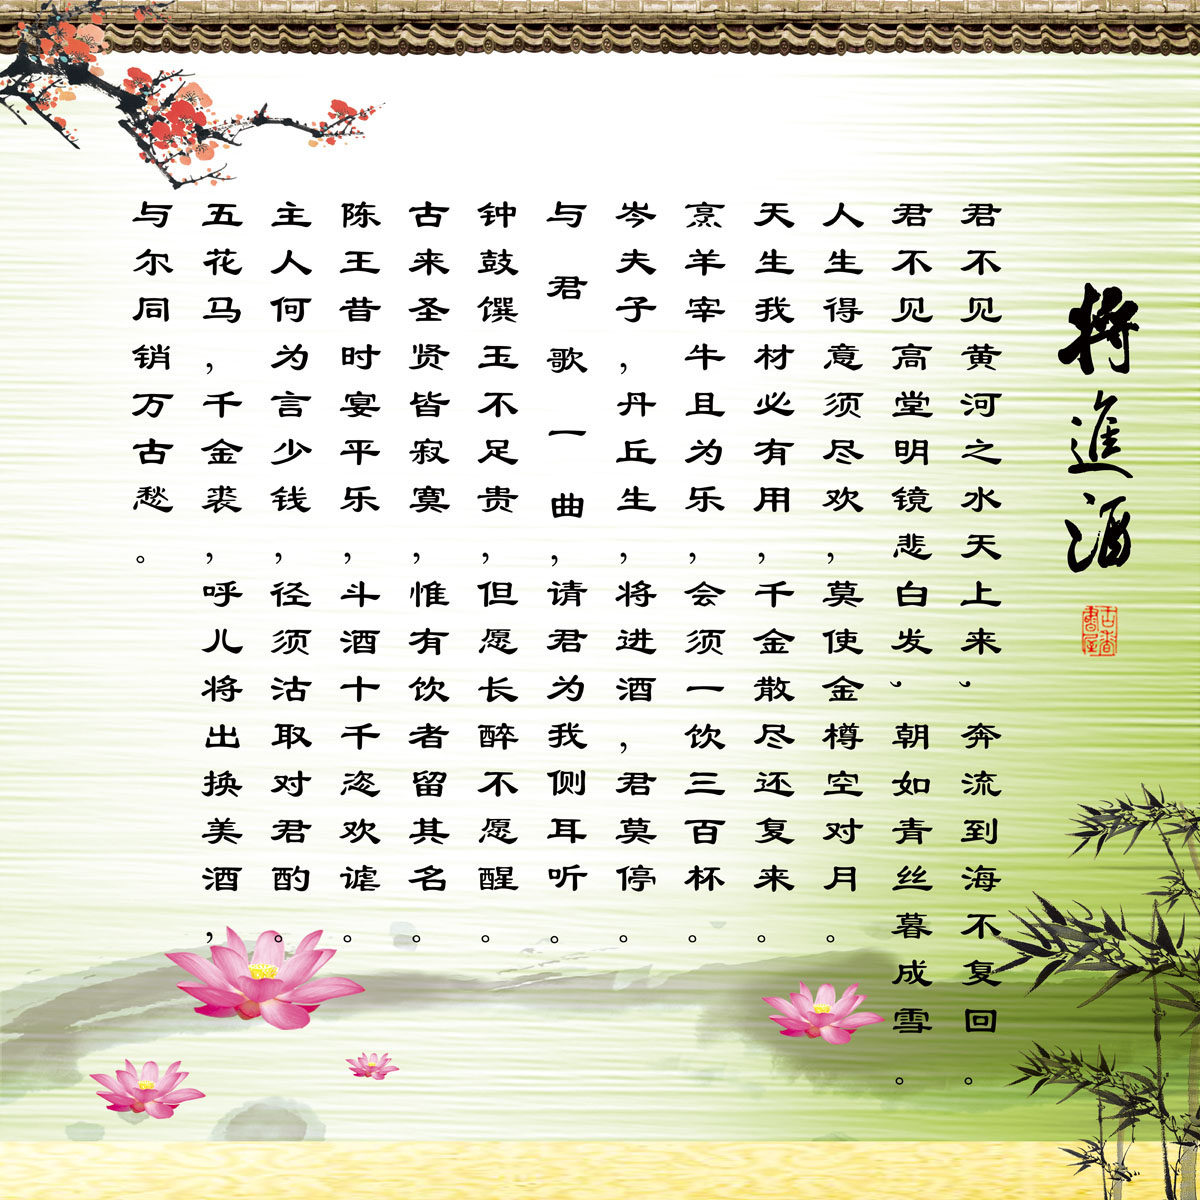 将進酒
君不见黄河之水天上来，奔流到海不复回。
君不见高堂明镜悲白发，朝如青丝暮成雪。
人生得意须尽欢，莫使金樽空对月。
天生我材必有用，千金散尽还复来。
烹羊宰牛且为乐，会须一饮三百杯。
岑夫子，丹丘生，将进酒，君莫停。
与君歌一曲，请君为我侧耳听。
钟鼓馔玉不足贵，但愿长醉不愿醒。
古来圣贤皆寂寞，惟有饮者留其名。
陈王昔时宴平乐，斗酒十千恣欢谑。
主人何为言少钱，径须沽取对君酌。
五花马，千金裘，呼儿将出换美酒，
与尔同销万古愁。